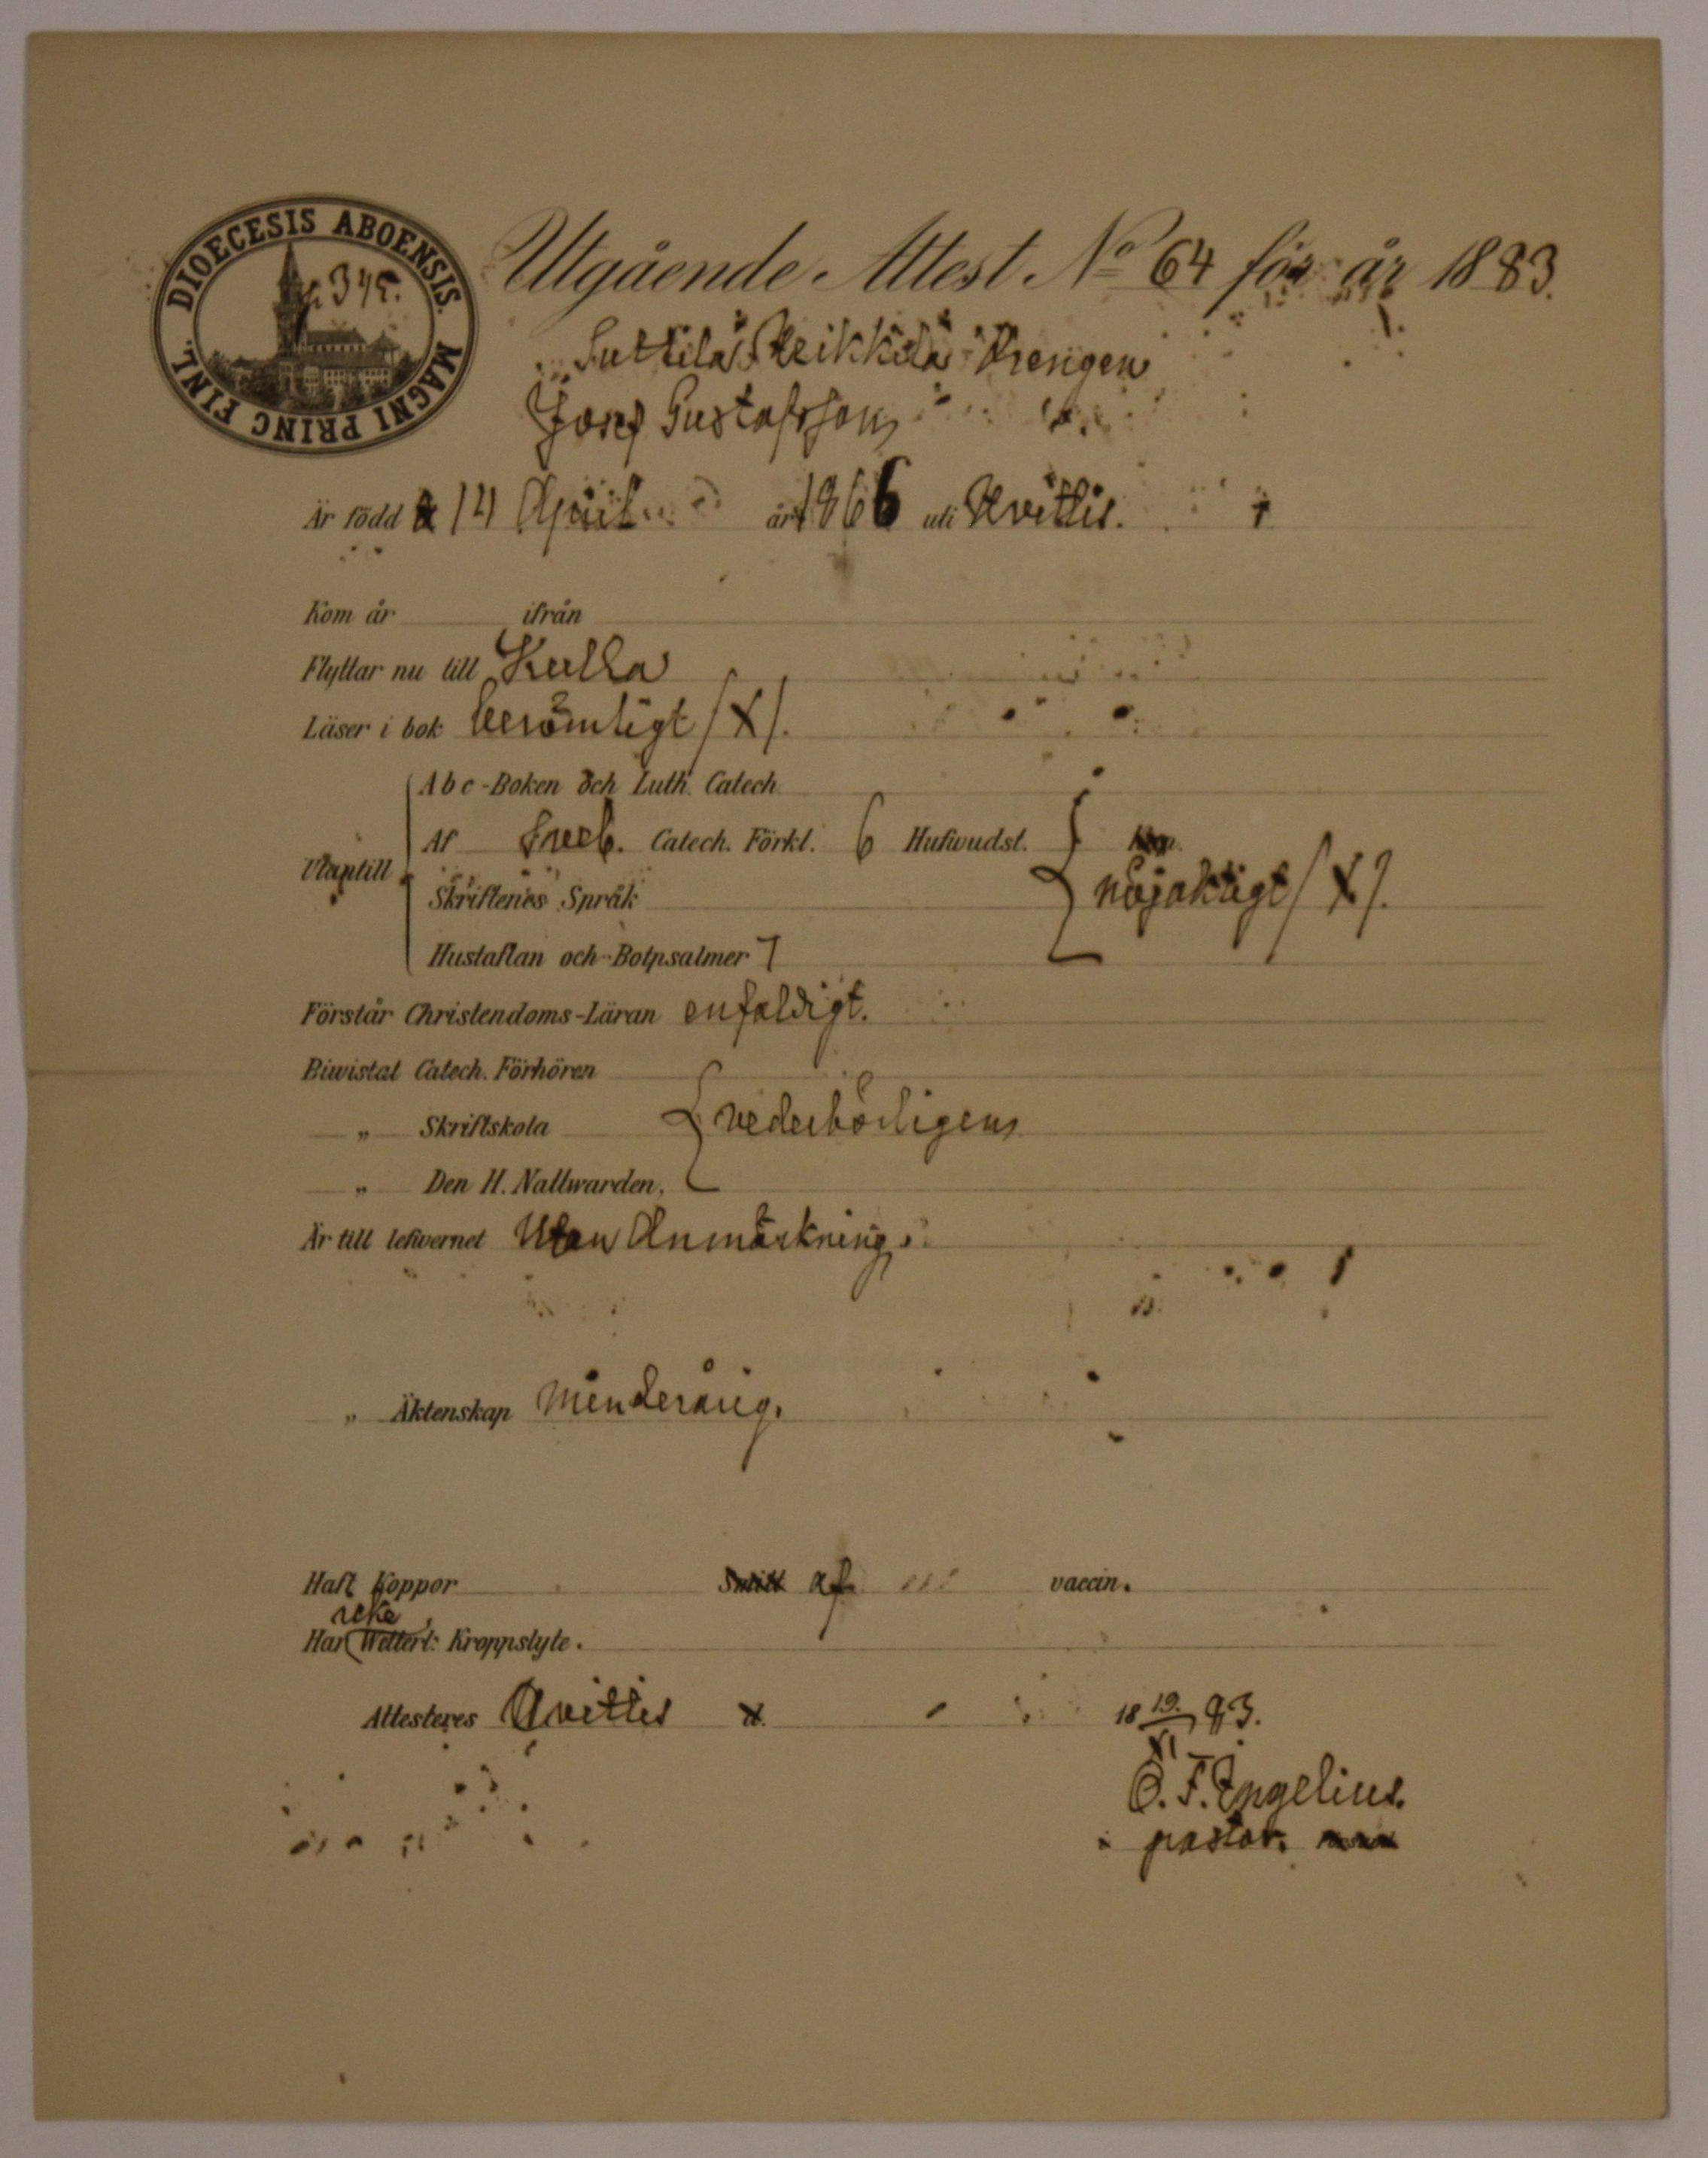 DIOECESIS ABOENSIS. MAGNI PRINC FINL.
p. 345.
Utgående Attest No 64 för år 1883.
Suttila Heikkilä Drengen
Josef Gustafsson
Är född 14 April år 1866 uti Hvittis.
Kom år ifrån
Flyttar nu till Kulla
Läser i bok berömligt /X/.
Abc-Boken och Luth. Catech
Utantill Af Sveb. Catech. Förkl. 6 Hufwudst.
Skriftenes Språk nöjaktigt /X/.
Hustaflan och Botpsalmer 7
Förstår Christendoms-Läran enfaldigt.
Biwistat Catech. Förhören
„ Skriftskola vederbörligen
„ Den H. Nattwarden,
Är till lefwernet Utan Anmärkning.
„ Äktenskap minderårig.
Haft Koppor af vaccin.
icke
Har Wetterl: Kroppslyte.
Attesteres Hvittis d. 18 19/XI 83.
O. F. Engelius.
pastor.